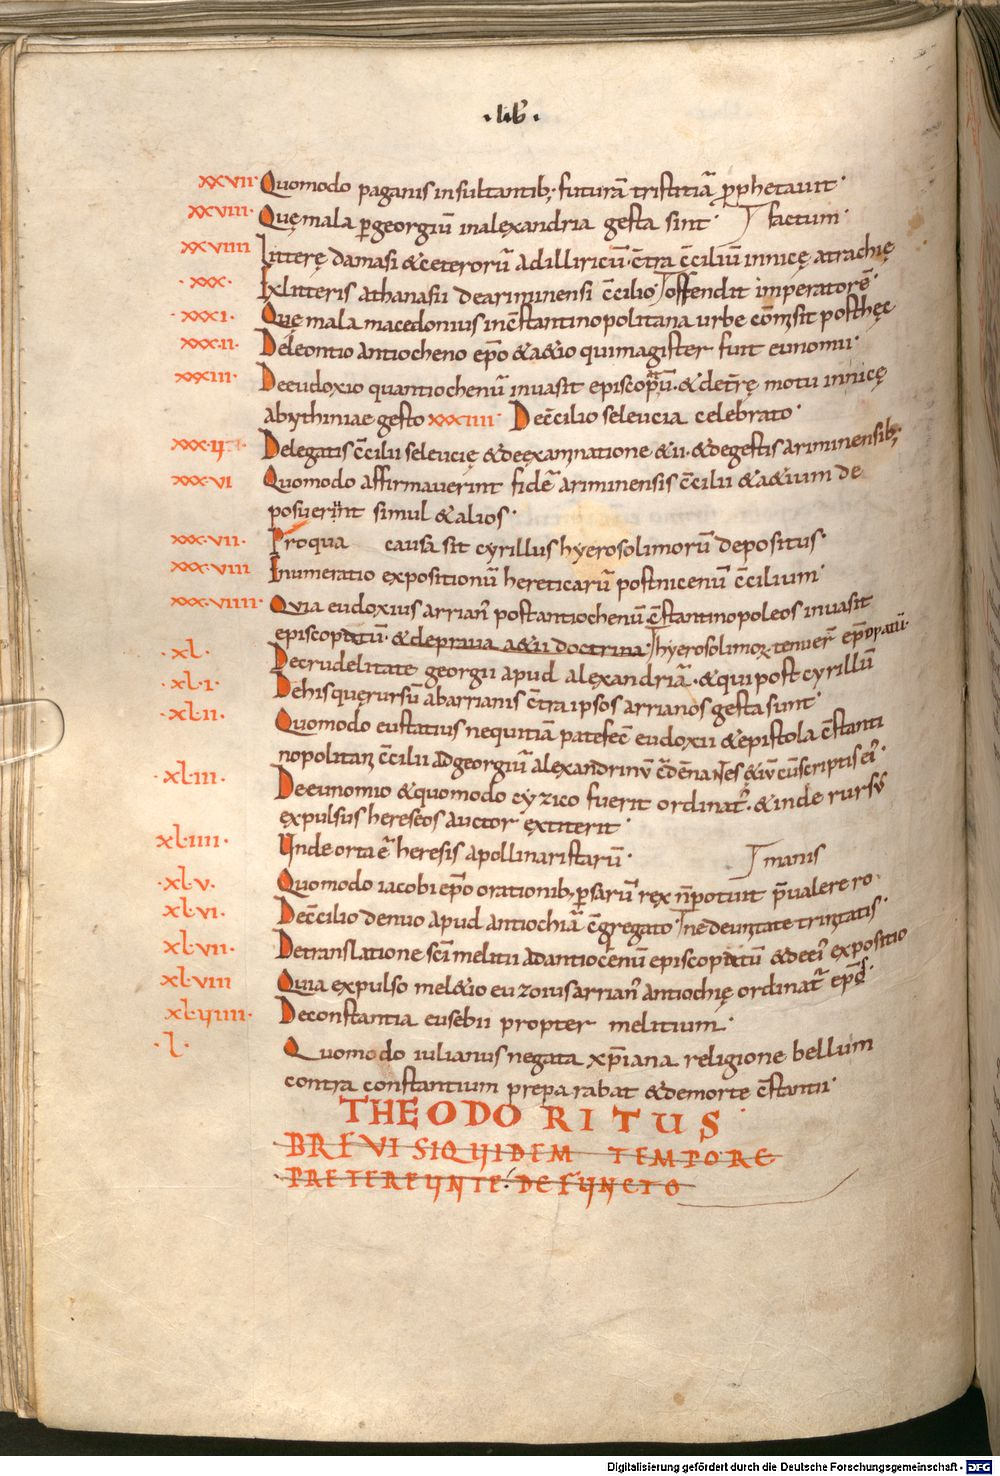 ·lib̅·
xxvii· Quomodo paganis insultantib; futurā tristitiā p̱phetauit·
xxviii· Quę mala ꝑgeorgiū inalęxandria gesta sint· factum·
xxviiii Litterę damasi &ceterorū adilliricū· c̄tra c̄ciliū innicę atrachię
·xxx· Exlitteris athanasii deariminensi c̄cilio· offendit imperatorē·
·xxxi· Quę mala macedonius inc̄stantinopolitana urbe com̄isit posthęc
xxx·ii· Deleontio antiocheno ep̄o &a&io quimagister fuit eunomii·
xxxiii· Deeudoxio quantiochenū inuasit episcopatū· &det̄rę motu innicę
abythiniae gesto xxxiiii· Dec̄cilio seleucia celebrato·
xxx·ii Delegatis c̄cilii seleucię &deęxaminatione &ii· &degestis ariminensib;
xxx·vi Quomodo affirmauerint fidē ariminensis c̄cilii &a&ium de
posuerint simul &alios·
xxx·vii· Proqua causa sit cyrillus hyerosolimorū depositus·
xxx·viii Enumeratio expositionū hereticarū postnicenū c̄cilium·
xxx·viiii· Quia eudoxius arrian' postantiochenū c̄stantinopoleos inuasit
episcopatū· &depraua a&ii doctrina· hyerosolimoꝝ tenuer̄ ep̄opatū·
·xl· Decrudelitate georgii apud alęxandriā· &qui post cyrillū
·xl·i· Dehis quęrursū abarrianis c̄tra ipsos arrianos gesta sunt·
·xl·ii· Quomodo eustatius nequitiā patefec̄ eudoxii &epistola c̄stanti
nopolitani c̄cilii adgeorgiū alęxandrinū
·xl·iii· Deeunomio &quomodo cyzico fuerit ordinat'· &inde rursū
expulsus hereseos auctor extiterit·
xl·iiii· Unde orta ē heresis apollinaristarū· manis
·xl·v· Quomodo iacobi ep̄o orationib; ꝑsarū rex n̄ potuit p̄ualere ro·
xl·vi· Dec̄cilio denuo apud antiochiā c̄gregato· nedeunitate trinitatis·
xl·vii· Detranslatione sc̄i melitii adantiocenū episcopatū &deei' expositio
xl·viii Quia expulso mel&io euzoius arrian' antiochię ordinat̄ ep̄s·
xl·viiii· Deconstantia eusebii propter melitium·
·l· Quomodo iulianus negata xp̄iana religione bellum
contra constantium prepa rabat &demorte c̄stantii·
THEODO RITUS
BREVI SIQUIDEM TEMPORE
PRETEREUNTE· DEFUNCTO
Digitalisierung gefördert durch die Deutsche Forschungsgemeinschaft - DFG